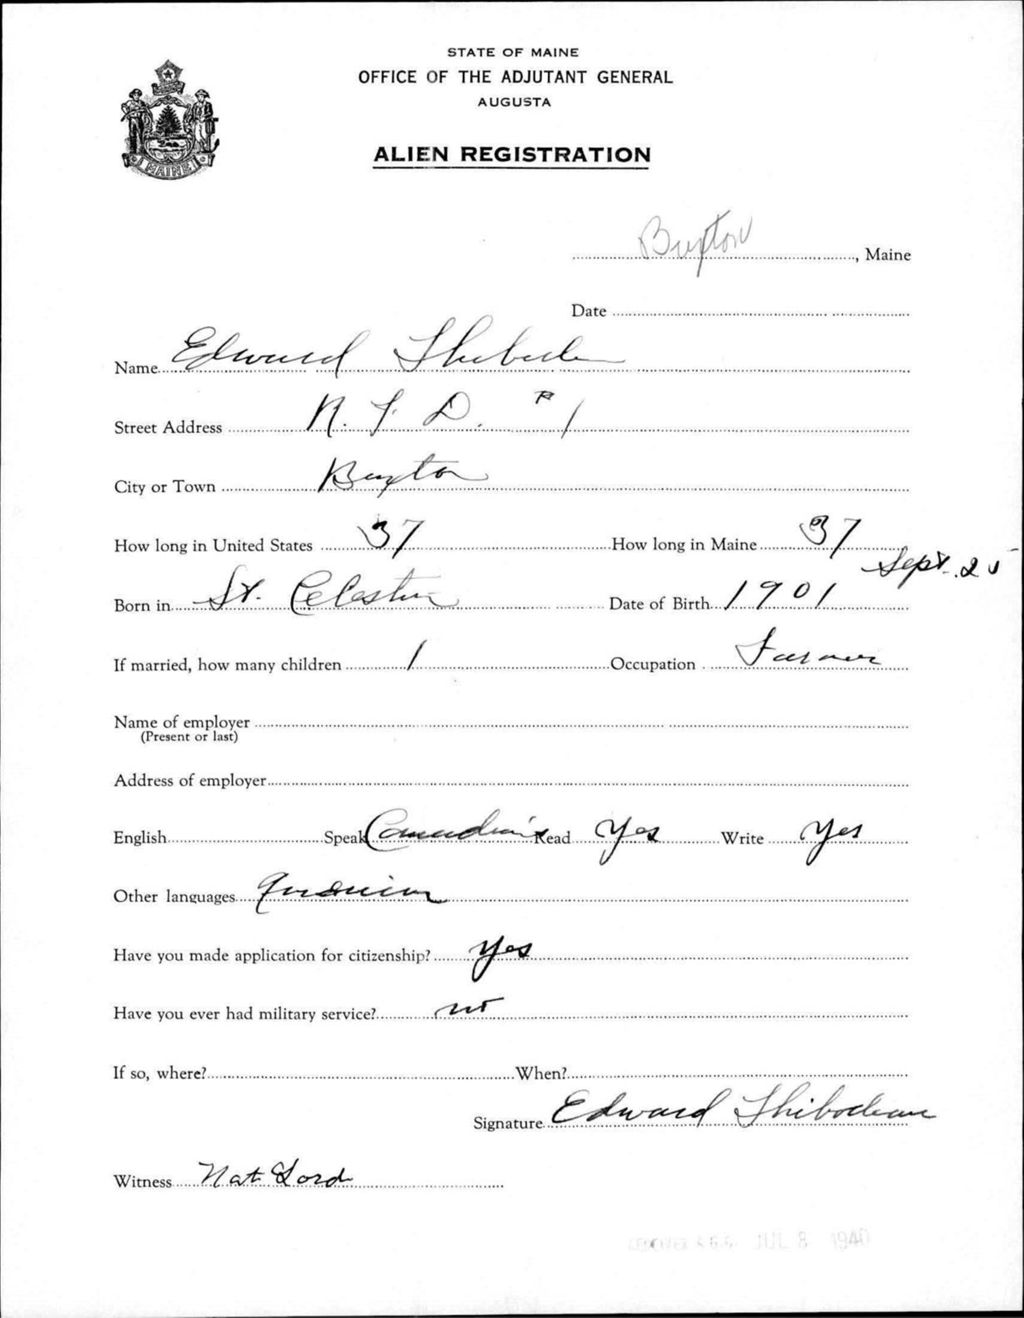 STATE OF MAINE
OFFICE OF THE ADJUTANT GENERAL
AUGUSTA
ALIEN REGISTRATION
MAINE
Buxton, Maine
Date
Name Edward
Street Address R. F. D. #1
City or Town Buxton
How long in United States 37 How long in Maine 37
Born in St. Celestin Date of Birth 1901 Sept. 25
If married, how many children 1 Occupation Farmer
Name of employer
(Present or last)
Address of employer
English Speak Read Yes Write Yes
Other languages
Have you made application for citizenship? Yes
Have you ever had military service? no
If so, where? When?
Signature Edward Thibodeau
Witness Nat Lord
JUL 8 1940